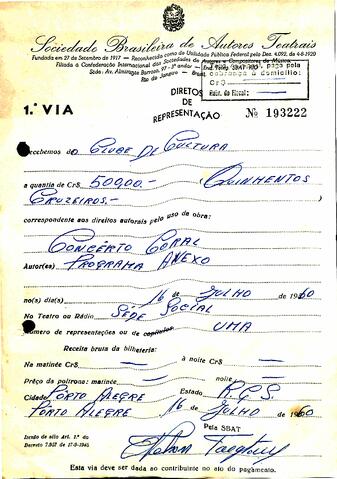 Sociedade Brasileira de Autores Teatrais
Fundada em 27 de Setembro de 1917 — Reconhecida como de Utilidade Pública Federal pelo Dec. 4.092, de 4-8-1920
Filiada à Confederação Internacional das Sociedades de Autores e Compositores
Séde: Av. Almirante Barroso, 97 - 3º andar
Rio de Janeiro - Brasil
paga pela
cobrança à domicílio:
Cr$
DIREITOS
DE
REPRESENTAÇÃO
1.ª VIA
Nº 193222
Recebemos do CLUBE DE CULTURA
a quantia de Cr$ 500,00.- QUINHENTOS
CRUZEIROS.-
correspondente aos direitos autorais pelo uso da obra:
CONCÊRTO CORAL
Autor(es) PROGRAMA ANEXO
no(s) dia(s) 16 de JULHO de 1960
No Teatro ou Rádio SÉDE SOCIAL
Número de representações ou de capítulos UMA
Receita bruta da bilheteria:
Na matinée Cr$ — à noite Cr$ —
Preço da poltrona: matinée — noite —
Cidade PÔRTO ALEGRE Estado R.G.S.
PÔRTO ALEGRE 16 de JULHO de 1960
Pela SBAT
Isento de sêlo Art. 1.º do
Decreto 7.957 de 17-9-1945
Esta via deve ser dada ao contribuinte no ato do pagamento.